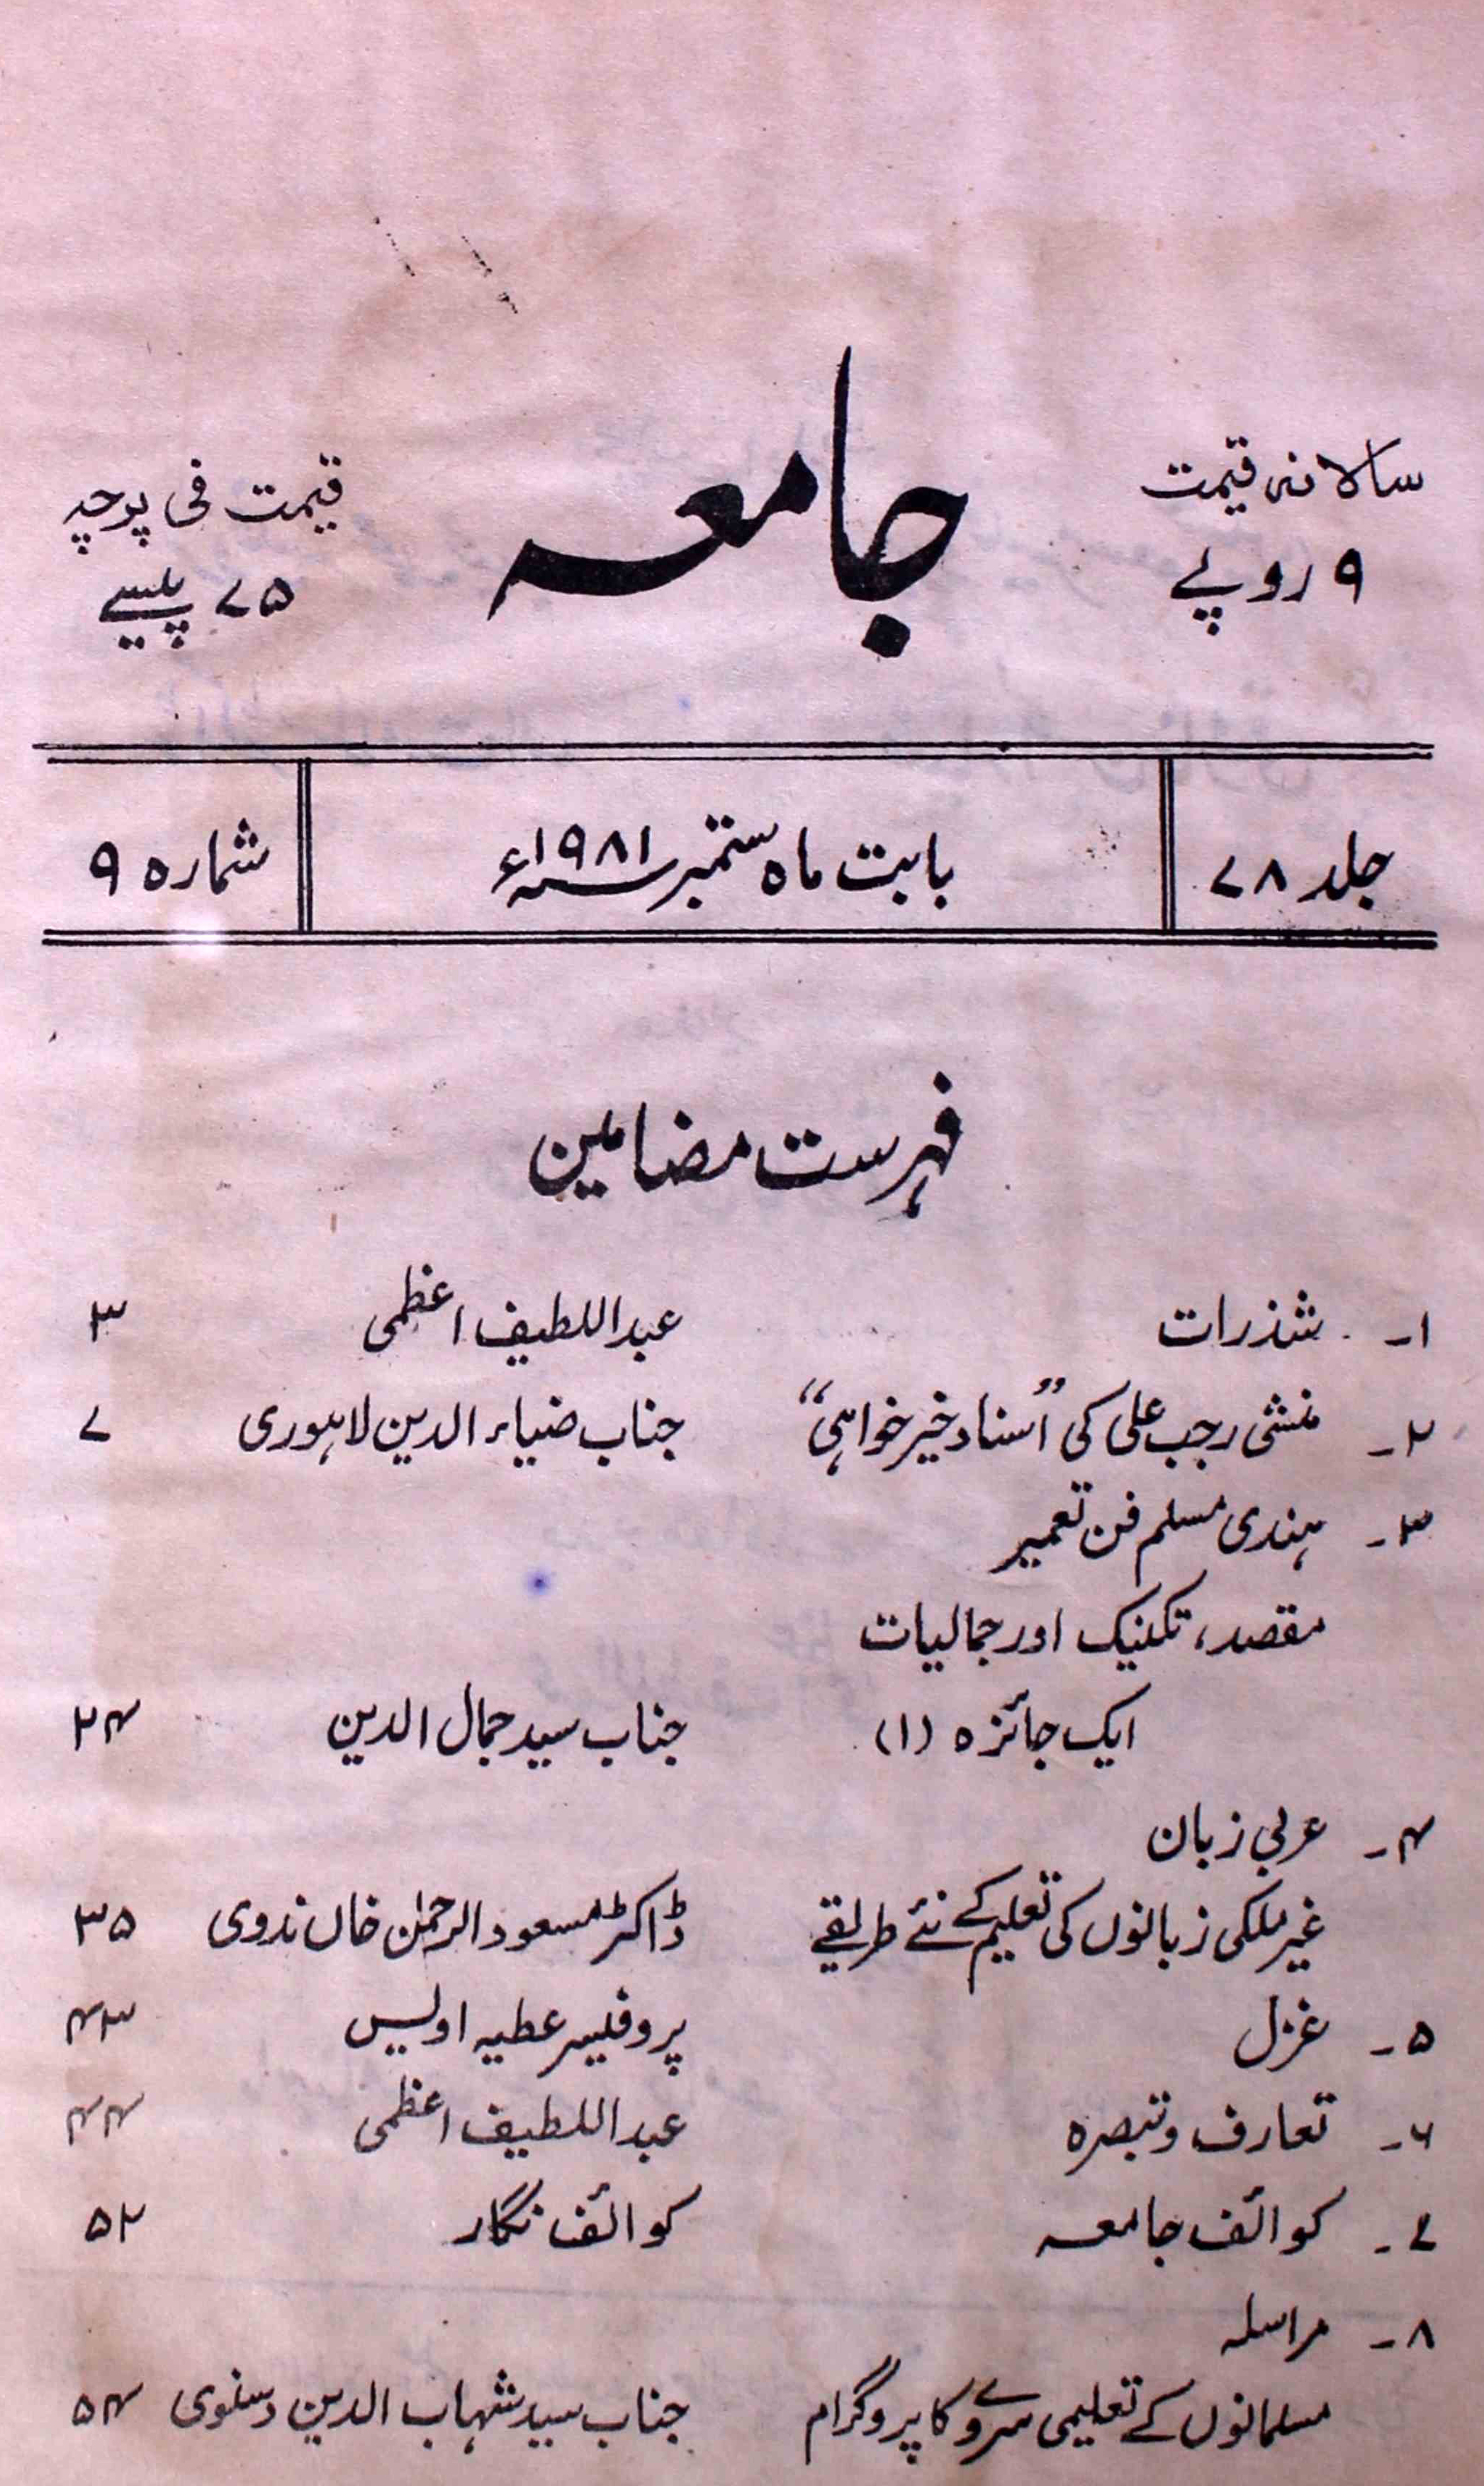 سالانہ قیمت
۹ روپے
جامعہ
قیمت فی پرچہ
۷۵ پیسے
جلد ۷۸
بابت ماہ ستمبر ۱۹۸۱ء
شمارہ ۹
فہرست مضامین
۱۔ شذرات عبداللطیف اعظمی ۳
۲۔ منشی رجب علی کی "اسناد خیرخواہی" جناب ضیاء الدین لاہوری ۷
۳۔ ہندی مسلم فن تعمیر
مقصد، تکنیک اور جمالیات
ایک جائزہ (۱) جناب سید جمال الدین ۲۴
۴۔ عربی زبان
غیر ملکی زبانوں کی تعلیم کے نئے طریقے ڈاکٹر مسعود الرحمٰن خاں ندوی ۳۵
۵۔ غزل پروفیسر عطیہ اویس ۴۳
۶۔ تعارف و تبصرہ عبداللطیف اعظمی ۴۴
۷۔ کوائف جامعہ کوائف نگار ۵۲
۸۔ مراسلہ
مسلمانوں کے تعلیمی سروے کا پروگرام جناب سید شہاب الدین دسنوی ۵۴